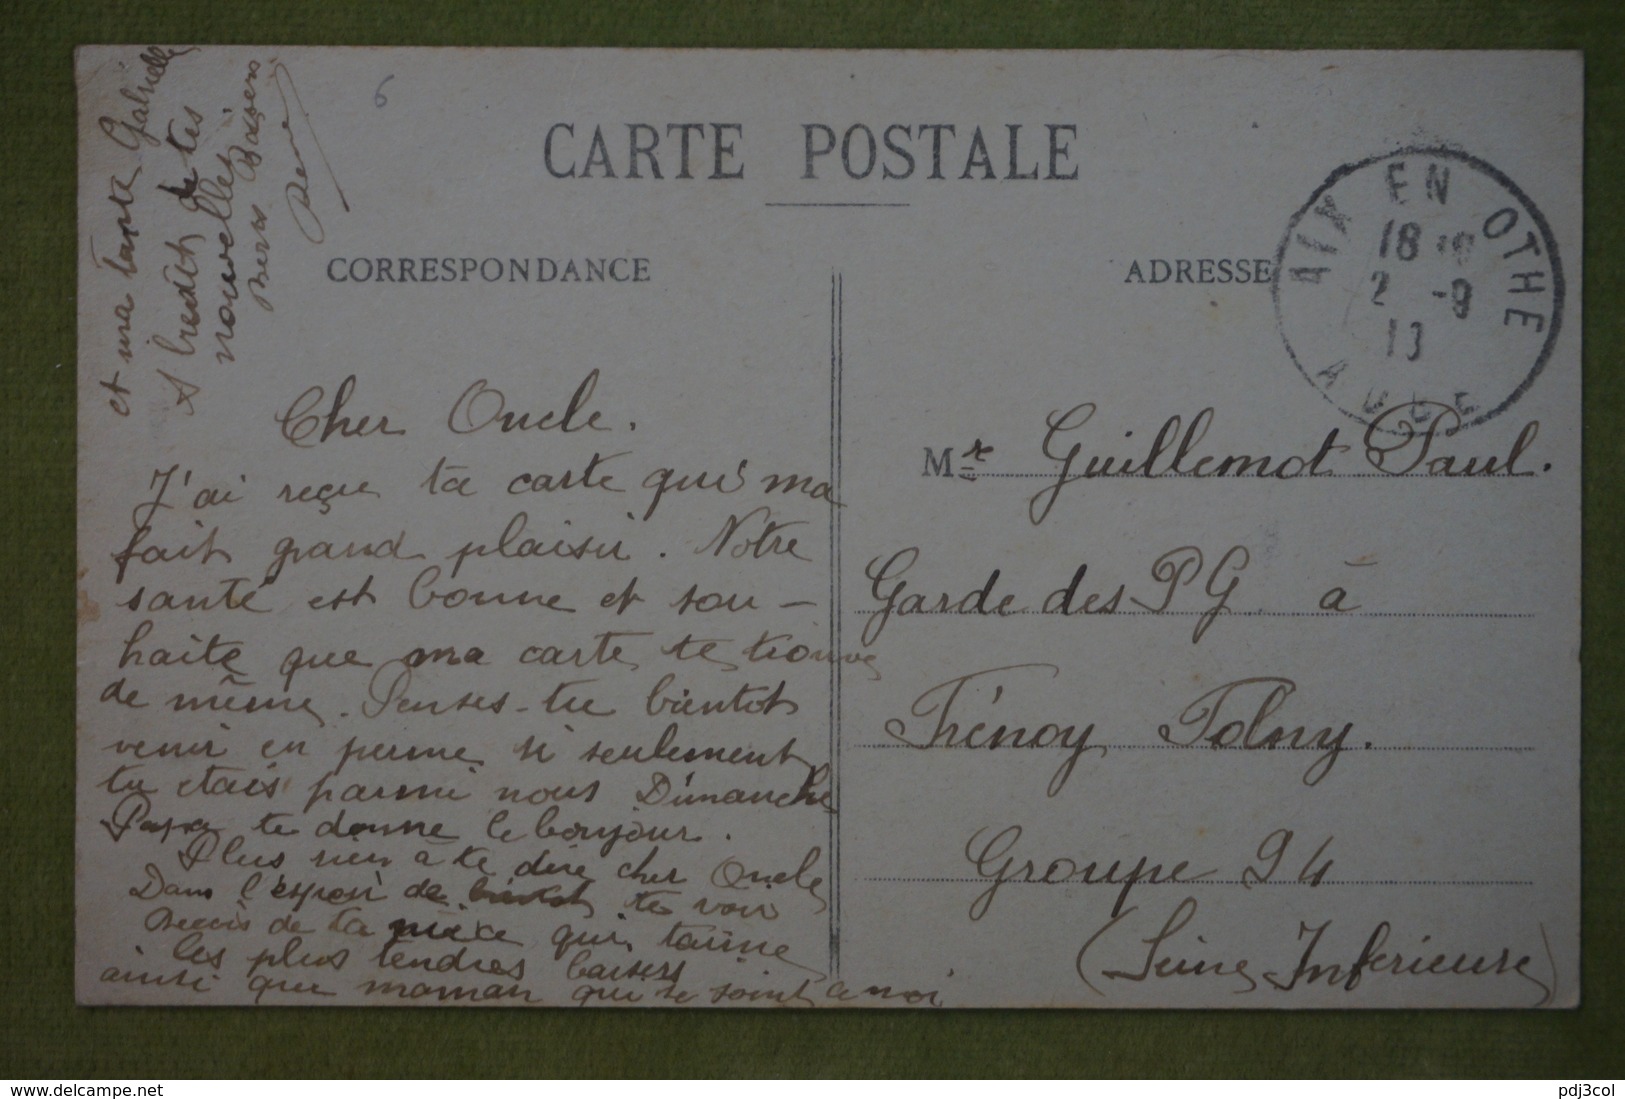 CARTE POSTALE
CORRESPONDANCE
ADRESSE
AIX EN OTHE
18
2 -9
AUBE
Cher Oncle.
J'ai reçu ta carte qui ma
fait grand plaisir. Notre
santé est bonne et sou-
haite que ma carte te trouve
de même. Penses-tu bientot
venir en perme si seulement
tu étais parmi nous Dimanche
Papa te donne le bonjour.
Plus rien à te dire cher Oncle
Dans l'espoir de te voir
Reçois de ta nièce qui t'aime
les plus tendres baisers
ainsi que maman qui se joint a moi
et ma tante Gabrielle
A bientôt de tes
nouvelles
Bons Baisers
Mr Guillemot Paul.
Garde des PG à
Frénoy Folny.
Groupe 94
(Seine Inférieure)
pdj3col
https://www.delcampe.net